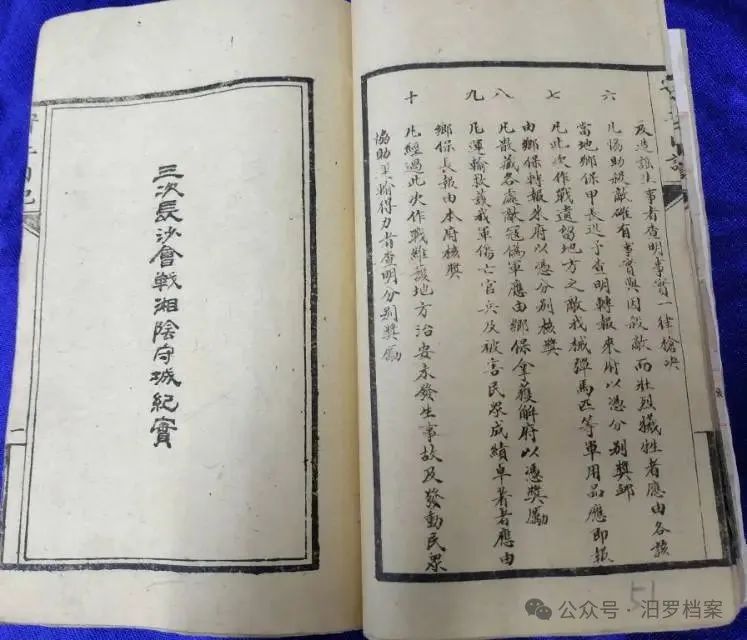 及造謠生事者查明事實一律槍决
六 凡協助殺敵確有事實與因殺敵而壯烈犧牲者應由各該
當地鄉保甲長迅予查明轉報來府以憑分別獎卹
七 凡此次作戰遺留地方之敵我械彈馬匹等軍用品應即報
由鄉保轉報來府以憑分別核獎
八 凡散藏各處敵寇偽軍應由鄉保獲解府以憑獎勵
九 凡運輸救護我軍傷亡官兵及被害民眾成績卓著者應由
鄉保長報由本府核獎
十 凡經過此次作戰維護地方治安未發生事故及發動民眾
協助運輸得力者查明分別獎勵
51
三次長沙會戰湘陰守城紀實
一
公众号·汨罗档案